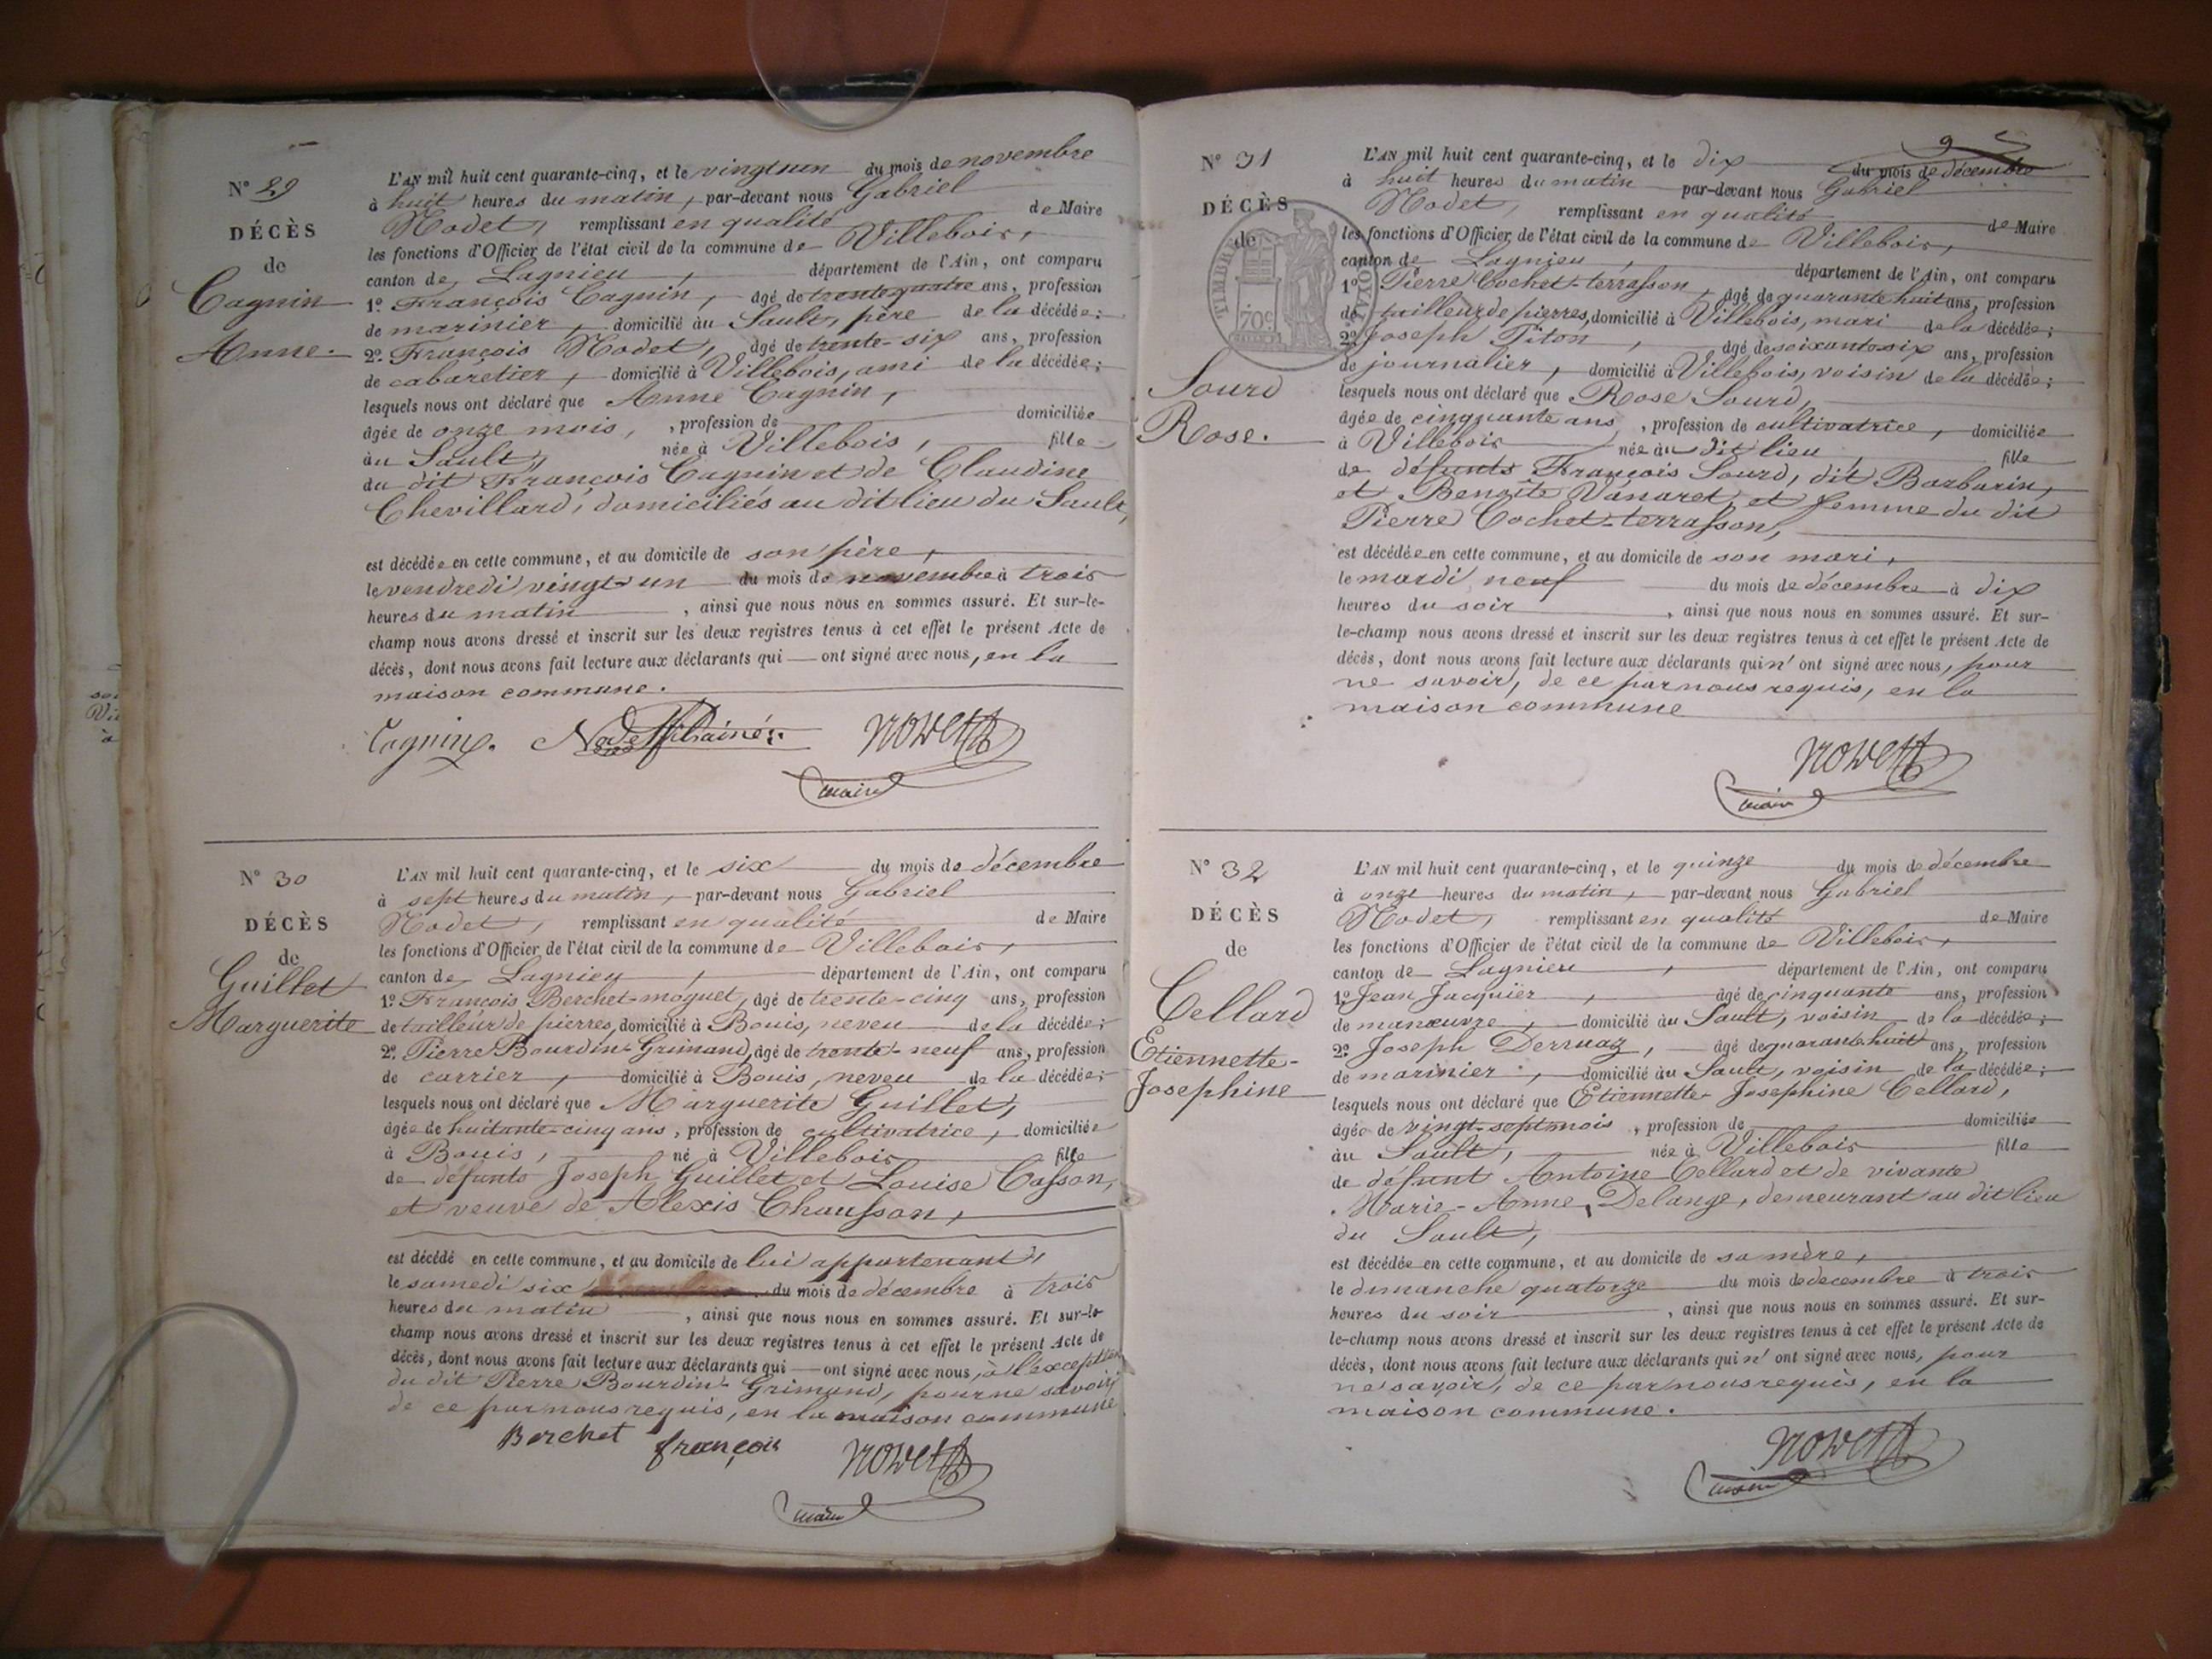 N° 29
DÉCÈS
de
Cagnin
Anne.
L'AN mil huit cent quarante-cinq, et le vingt un du mois de novembre
à huit heures du matin, par-devant nous Gabriel
Nodet, remplissant en qualité de Maire
les fonctions d'Officier de l'état civil de la commune de Villebois,
canton de Lagnieu, département de l'Ain, ont comparu
1° François Cagnin, âgé de trente quatre ans, profession
de marinier, domicilié au Sault, père de la décédée;
2° François Nodet, âgé de trente-six ans, profession
de cabaretier, domicilié à Villebois, ami de la décédée;
lesquels nous ont déclaré que Anne Cagnin,
âgée de onze mois, , profession de domiciliée
au Sault, née à Villebois, fille
du dit François Cagnin et de Claudine
Chevillard, domiciliés au dit lieu du Sault,
est décédée en cette commune, et au domicile de son père,
le vendredi vingt-un du mois de novembre à trois
heures du matin , ainsi que nous nous en sommes assuré. Et sur-le-
champ nous avons dressé et inscrit sur les deux registres tenus à cet effet le présent Acte de
décès, dont nous avons fait lecture aux déclarants qui ont signé avec nous, en la
maison commune.
Cagnin. Nodet
maire
N° 30
DÉCÈS
de
Guillet
Marguerite
L'AN mil huit cent quarante-cinq, et le six du mois de décembre
à sept heures du matin, par-devant nous Gabriel
Nodet, remplissant en qualité de Maire
les fonctions d'Officier de l'état civil de la commune de Villebois,
canton de Lagnieu, département de l'Ain, ont comparu
1° François Berchet-moguet, âgé de trente-cinq ans, profession
de tailleur de pierres, domicilié à Bouis, neveu de la décédée;
2° Pierre Bourdin-Grimaud, âgé de trente-neuf ans, profession
de carrier, domicilié à Bouis, neveu de la décédée;
lesquels nous ont déclaré que Marguerite Guillet,
âgée de huitante-cinq ans, profession de cultivatrice, domiciliée
à Bouis, né à Villebois fille
de défunts Joseph Guillet et Louise Casson,
et veuve de Alexis Chausson,
est décédé en cette commune, et au domicile de lui appartenant,
le samedi six du mois de décembre à trois
heures du matin , ainsi que nous nous en sommes assuré. Et sur-le-
champ nous avons dressé et inscrit sur les deux registres tenus à cet effet le présent Acte de
décès, dont nous avons fait lecture aux déclarants qui ont signé avec nous, à l'exception
du dit Pierre Bourdin-Grimaud, pour ne savoir,
de ce par nous requis, en la maison commune
Berchet françois
maire
9
N° 31
DÉCÈS
de
TIMBRE ROYAL
70 c
Sourd
Rose.
L'AN mil huit cent quarante-cinq, et le dix du mois de décembre
à huit heures du matin par-devant nous Gabriel
Nodet, remplissant en qualité de Maire
les fonctions d'Officier de l'état civil de la commune de Villebois,
canton de Lagnieu, département de l'Ain, ont comparu
1° Pierre Cochet-terrasson, âgé de quarante huit ans, profession
de tailleur de pierres, domicilié à Villebois, mari de la décédée;
2° Joseph Piton, âgé de soixante six ans, profession
de journalier, domicilié à Villebois, voisin de la décédée;
lesquels nous ont déclaré que Rose Sourd,
âgée de cinquante ans, profession de cultivatrice, domiciliée
à Villebois née au dit lieu, fille
de défunts François Sourd, dit Barbarin,
et Benoîte Vanaret, et femme du dit
Pierre Cochet-terrasson,
est décédée en cette commune, et au domicile de son mari,
le mardi neuf du mois de décembre à dix
heures du soir , ainsi que nous nous en sommes assuré. Et sur-
le-champ nous avons dressé et inscrit sur les deux registres tenus à cet effet le présent Acte de
décès, dont nous avons fait lecture aux déclarants qui n'ont signé avec nous, pour
ne savoir, de ce par nous requis, en la
maison commune
maire
N° 32
DÉCÈS
de
Cellard
Etiennette-
Josephine
L'AN mil huit cent quarante-cinq, et le quinze du mois de décembre
à onze heures du matin, par-devant nous Gabriel
Nodet, remplissant en qualité de Maire
les fonctions d'Officier de l'état civil de la commune de Villebois,
canton de Lagnieu, département de l'Ain, ont comparu
1° Jean Jacquier, âgé de cinquante ans, profession
de manœuvre, domicilié au Sault, voisin de la décédée;
2° Joseph Derruaz, âgé de quarante huit ans, profession
de marinier, domicilié au Sault, voisin de la décédée;
lesquels nous ont déclaré que Etiennette Josephine Cellard,
âgée de vingt-sept mois, profession de domiciliée
au Sault, née à Villebois fille
de défunt Antoine Cellard et de vivante
Marie-Anne Delange, demeurant au dit lieu
du Sault,
est décédée en cette commune, et au domicile de sa mère,
le dimanche quatorze du mois de decembre à trois
heures du soir , ainsi que nous nous en sommes assuré. Et sur-
le-champ nous avons dressé et inscrit sur les deux registres tenus à cet effet le présent Acte de
décès, dont nous avons fait lecture aux déclarants qui n'ont signé avec nous, pour
ne savoir, de ce par nous requis, en la
maison commune.
maire